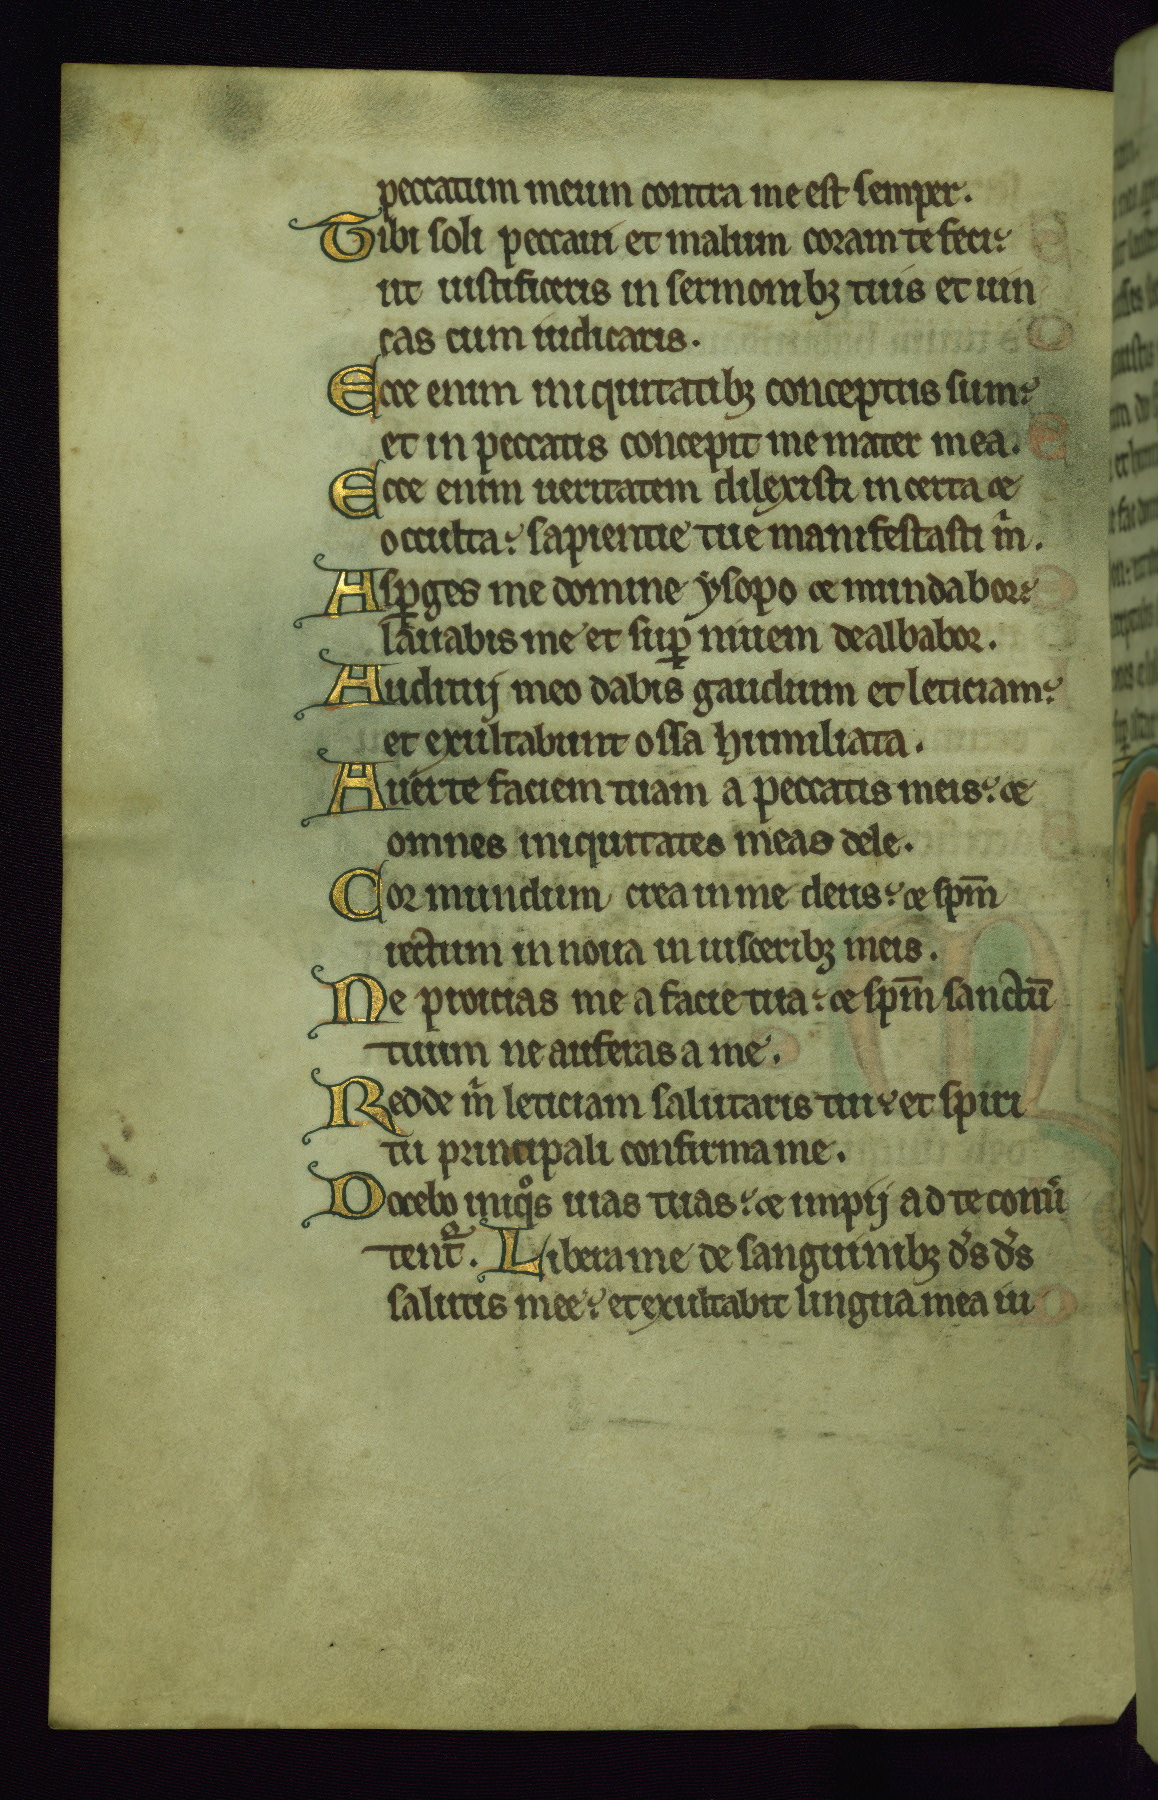 peccatum meum contra me est semper.
Tibi soli peccaui et malum coram te feci:
ut iustificeris in sermonibꝫ tuis et uin
cas cum iudicaris.
Ecce enim iniquitatibꝫ conceptus sum:
et in peccatis concepit me mater mea.
Ecce enim ueritatem dilexisti incerta ⁊
occulta: sapientie tue manifestasti m̍.
Asꝑges me domine ysopo ⁊ mundabor:
lauabis me et suꝑ niuem dealbabor.
Audituij meo dabis gaudium et leticiam:
et exultabunt ossa humiliata.
Auerte faciem tuam a peccatis meis: ⁊
omnes iniquitates meas dele.
Cor mundum crea in me deus: ⁊ sp̄m
rectum in noua in uisceribꝫ meis.
Ne proicias me a facie tua: ⁊ sp̄m sanctū
tuum ne auferas a me.
Redde m̍ leticiam salutaris tui: et spiri
tu principali confirma me.
Docebo iniqͦs uias tuas: ⁊ impij ad te conu̍
tent᷑. Libera me de sanguinibꝫ d̍s d̍s
salutis mee: et exultabit lingua mea iu